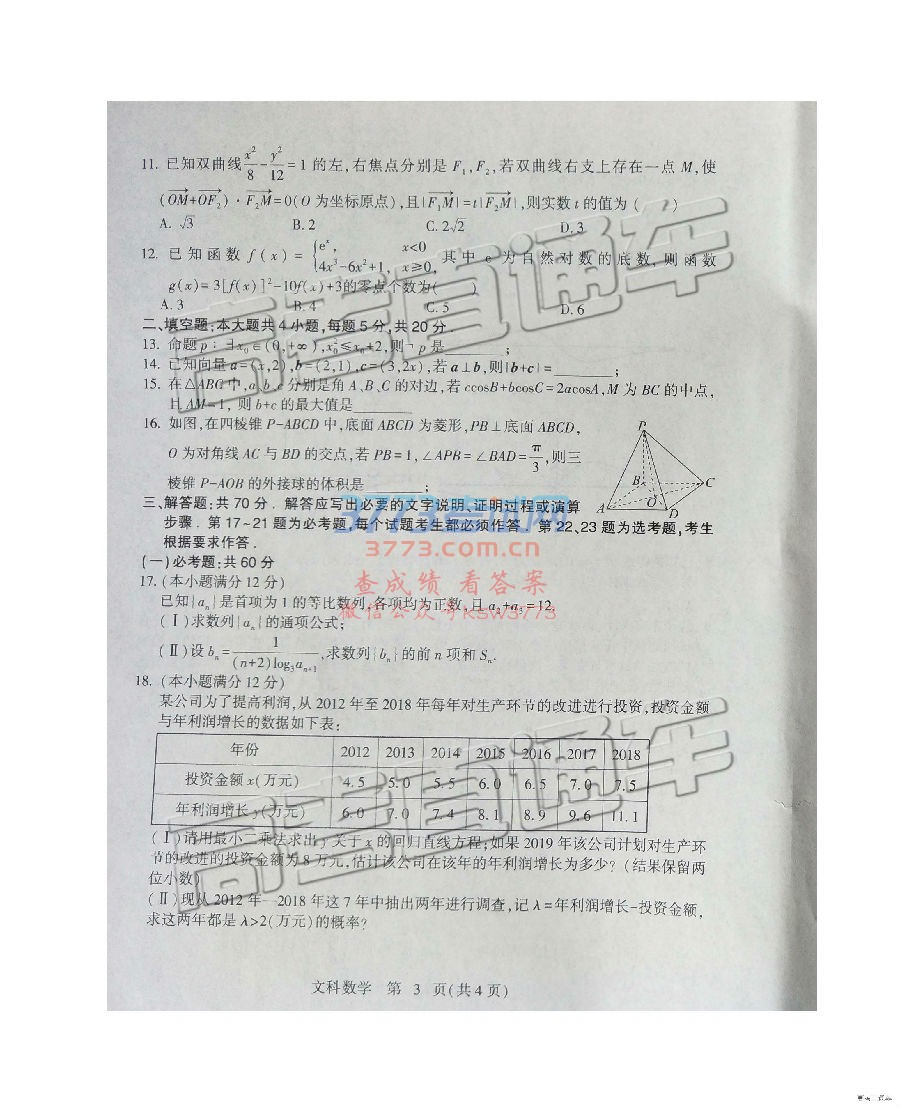 11. 已知双曲线x²/8-y²/12=1 的左,右焦点分别是 F₁,F₂,若双曲线右支上存在一点 M,使
(OM+OF₂)·F₂M=0(O 为坐标原点),且|F₁M|=t|F₂M|,则实数 t 的值为 ( )
A. √3 B. 2 C. 2√2 D. 3
12. 已知函数 f(x)={eˣ, x<0
4x³-6x²+1, x≥0, 其中 e 为自然对数的底数,则函数
g(x)=3[f(x)]²-10f(x)+3的零点个数为( )
A. 3 B. 4 C. 5 D. 6
二、填空题:本大题共 4 小题,每题 5 分,共 20 分.
13. 命题 p:∃x₀∈(0,+∞),x₀²≤x₀+2,则¬p 是________;
14. 已知向量 a=(x,2),b=(2,1),c=(3,2x),若 a⊥b,则|b+c|=________;
15. 在△ABC 中,a,b,c 分别是角 A、B、C 的对边,若 ccosB+bcosC=2acosA,M 为 BC 的中点,
且 AM=1, 则 b+c 的最大值是________
16. 如图,在四棱锥 P-ABCD 中,底面 ABCD 为菱形,PB⊥底面 ABCD,
O 为对角线 AC 与 BD 的交点,若 PB=1,∠APB=∠BAD=π/3,则三
棱锥 P-AOB 的外接球的体积是________;
P
B
C
O
A
D
三、解答题:共 70 分. 解答应写出必要的文字说明、证明过程或演算
步骤. 第 17~21 题为必考题,每个试题考生都必须作答. 第 22、23 题为选考题,考生
根据要求作答.
(一)必考题:共 60 分
17. (本小题满分 12 分)
已知{aₙ}是首项为 1 的等比数列,各项均为正数,且 a₂+a₃=12.
(Ⅰ)求数列{aₙ}的通项公式;
(Ⅱ)设 bₙ=1/((n+2)log₃aₙ₊₁),求数列{bₙ}的前 n 项和 Sₙ.
18. (本小题满分 12 分)
某公司为了提高利润,从 2012 年至 2018 年每年对生产环节的改进进行投资,投资金额
与年利润增长的数据如下表:
年份 2012 2013 2014 2015 2016 2017 2018
投资金额 x(万元) 4.5 5.0 5.5 6.0 6.5 7.0 7.5
年利润增长 y(万元) 6.0 7.0 7.4 8.1 8.9 9.6 11.1
(Ⅰ)请用最小二乘法求出 y 关于 x 的回归直线方程;如果 2019 年该公司计划对生产环
节的改进的投资金额为 8 万元,估计该公司在该年的年利润增长为多少?(结果保留两
位小数)
(Ⅱ)现从 2012 年—2018 年这 7 年中抽出两年进行调查,记 λ=年利润增长-投资金额,
求这两年都是 λ>2(万元)的概率?
文科数学 第 3 页(共 4 页)
高考直通车
3773考试网
3773.com.cn
查成绩 看答案
微信公众号ksw3773
高考直通车